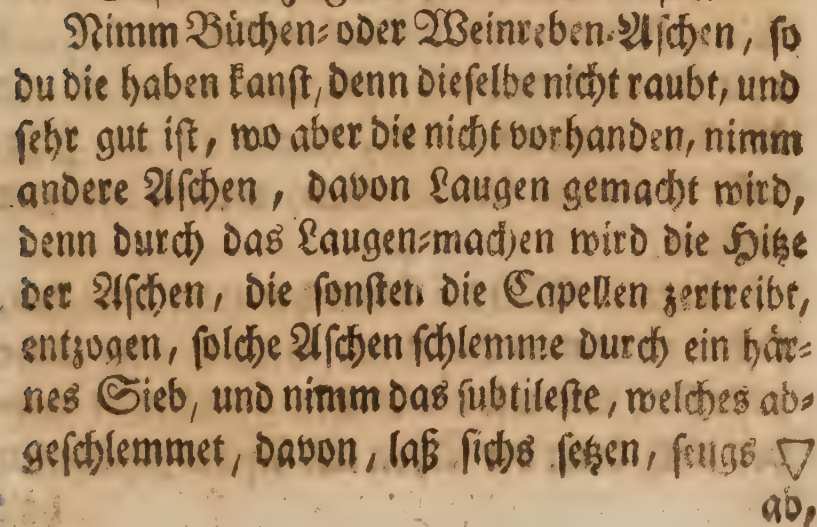 Nimm Büchen- oder Weinreben-Aschen, so
du die haben kanst, denn dieselbe nicht raubt, und
sehr gut ist, wo aber die nicht vorhanden, nimm
andere Aschen, davon Laugen gemacht wird,
denn durch das Laugen-machen wird die Hitze
der Aschen, die sonsten die Capellen zertreibt,
entzogen, solche Aschen schlemme durch ein här-
nes Sieb, und nimm das subtileste, welches ab-
geschlemmet, davon, laß sichs setzen, seugs 🜄
ab,